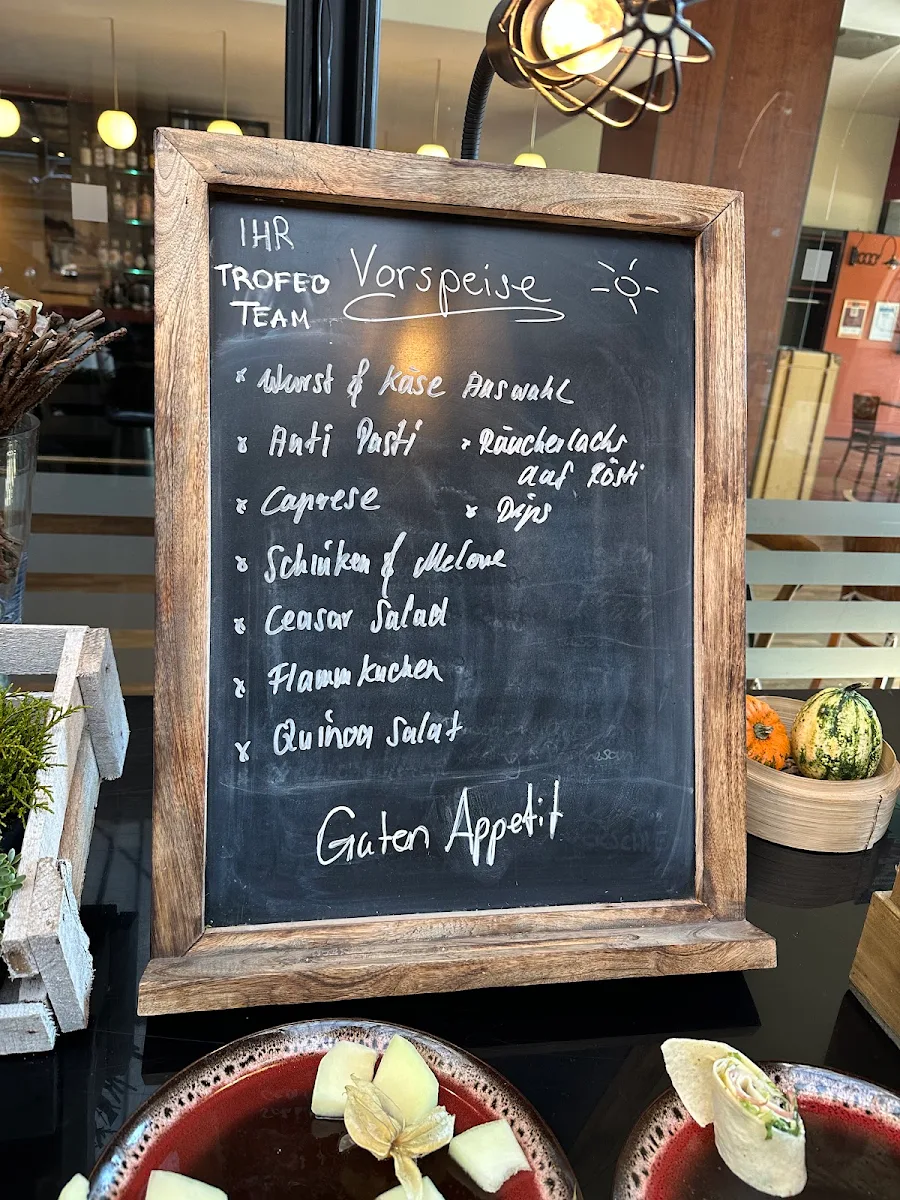 IHR
TROFEO
TEAM
Vorspeise
Wurst & Käse Auswahl
Anti Pasti
Räucherlachs
auf Rösti
Caprese
Dips
Schinken & Melone
Ceasar Salad
Flammkuchen
Quinoa Salat
Guten Appetit